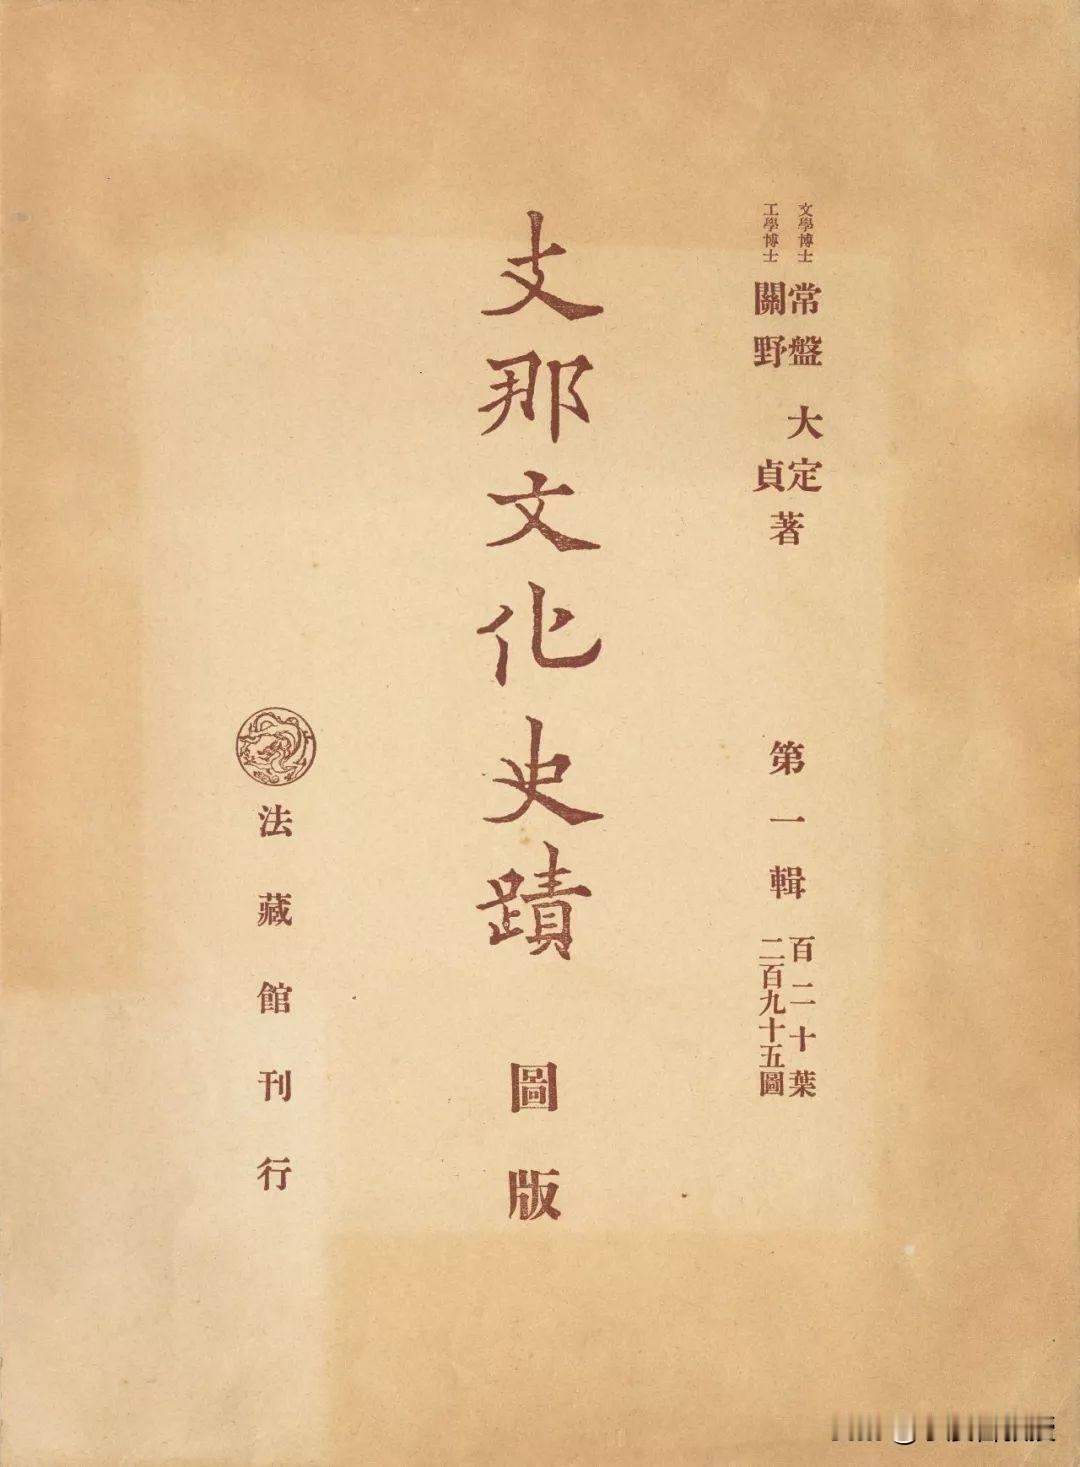 文學博士 常盤大定
工學博士 關野貞
著
第一輯
百二十葉
二百九十五圖
支那文化史蹟 圖版
法藏館刊行